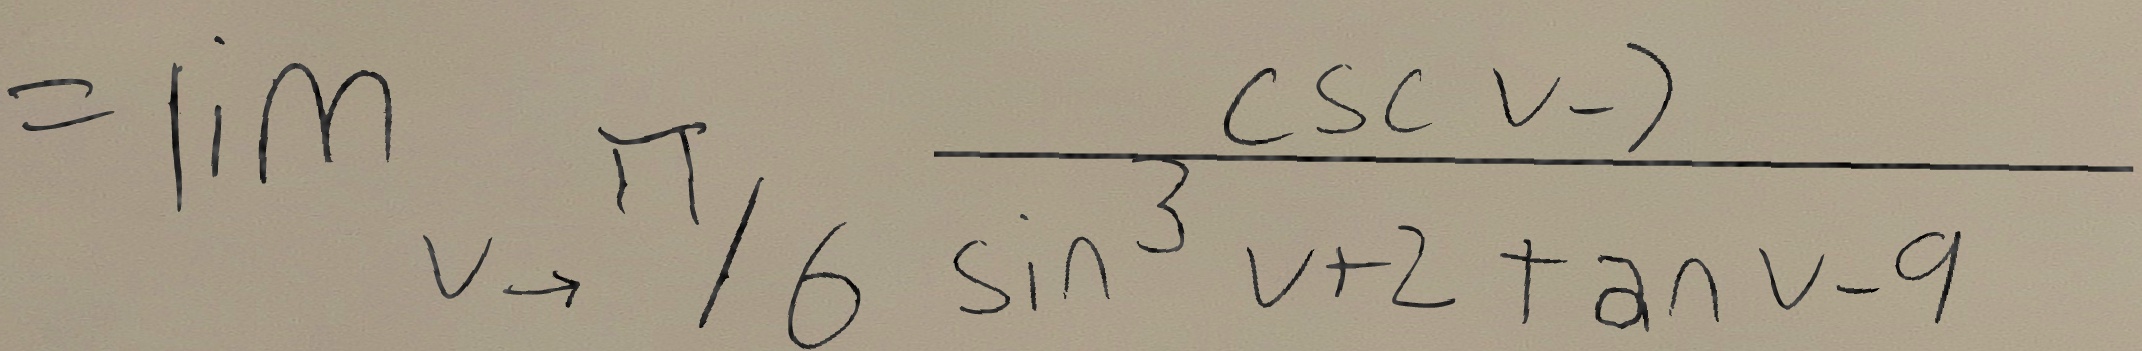 = lim_{v→π/6} \frac{csc v-7}{sin^3 v+2 tan v-9}